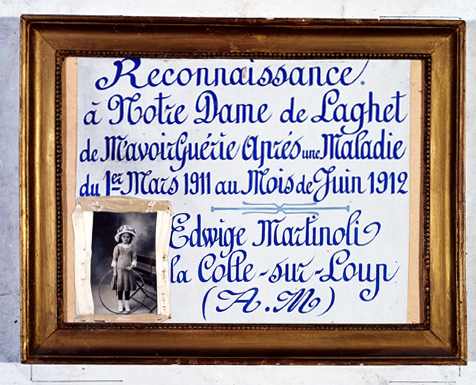 Reconnaissance.
à Notre Dame de Laghet
de M'avoir Guérie Aprés une Maladie
du 1er Mars 1911 au Mois de Juin 1912
Edwige Martinoli
la Colle-sur-Loup
(A.M)